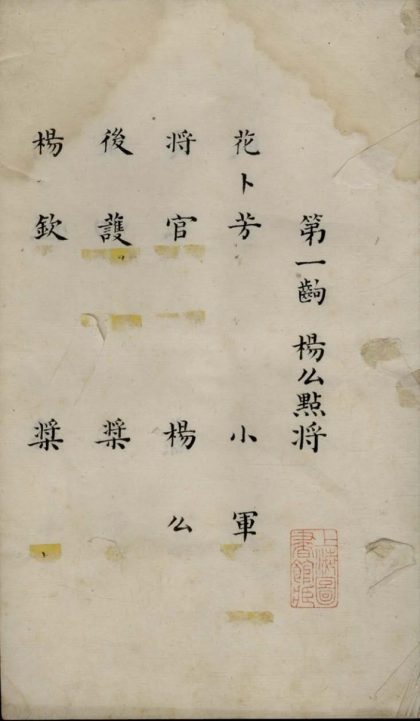 第一齣 楊么點将
花卜芳 小軍
将官 楊么
後護 槳
楊欽 槳
上海圖書館藏